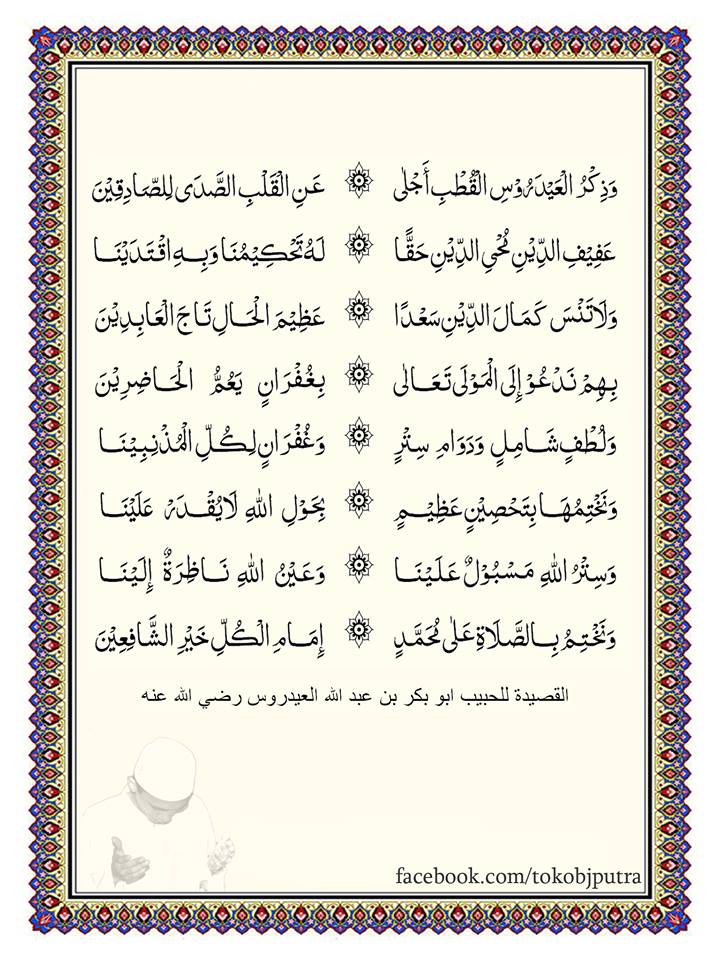 وَذِكْرُ الْعَيْدَرُوْسِ الْقُطْبِ أَجْلٰى ۞ عَنِ الْقَلْبِ الصَّدَى لِلصَّادِقِيْنَ
عَفِيْفِ الدِّيْنِ مُحْيِ الدِّيْنِ حَقًّا ۞ لَهُ تَحْكِيْمُنَا وَبِهِ اقْتَدَيْنَا
وَلَاتَنْسَ كَمَالَ الدِّيْنِ سَعْدًا ۞ عَظِيْمَ الْحَالِ تَاجَ الْعَابِدِيْنَ
بِهِمْ نَدْعُوْ إِلَى الْمَوْلَى تَعَالٰى ۞ بِغُفْرَانٍ يَعُمُّ الْحَاضِرِيْنَ
وَلُطْفٍ شَامِلٍ وَدَوَامِ سِتْرٍ ۞ وَغُفْرَانٍ لِكُلِّ الْمُذْنِبِيْنَا
وَنَخْتِمُهَا بِتَحْصِيْنٍ عَظِيْمٍ ۞ بِحَوْلِ اللهِ لَايُقْدَرْ عَلَيْنَا
وَسِتْرُ اللهِ مَسْبُوْلٌ عَلَيْنَا ۞ وَعَيْنُ اللهِ نَاظِرَةٌ إِلَيْنَا
وَنَخْتِمُ بِالصَّلَاةِ عَلٰى مُحَمَّدٍ ۞ إِمَامِ الْكُلِّ خَيْرِ الشَّافِعِيْنَ
القصيدة للحبيب ابو بكر بن عبد الله العيدروس رضي الله عنه
facebook.com/tokobjputra